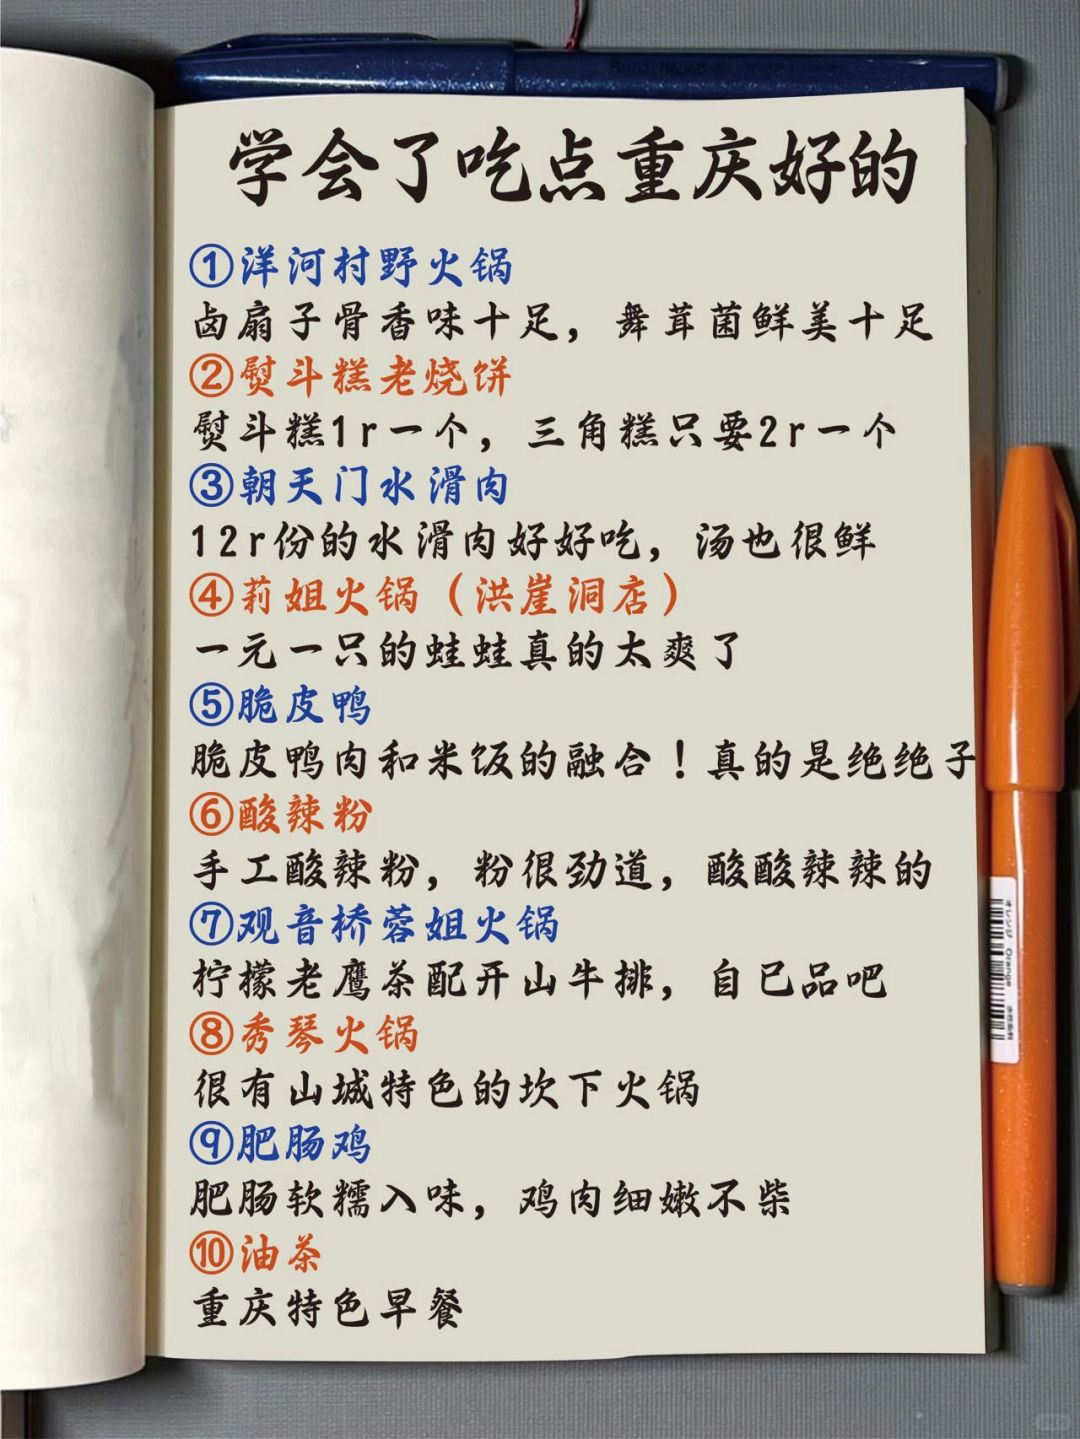 学会了吃点重庆好的
①洋河村野火锅
卤扇子骨香味十足，舞茸菌鲜美十足
②熨斗糕老烧饼
熨斗糕1r一个，三角糕只要2r一个
③朝天门水滑肉
12r份的水滑肉好好吃，汤也很鲜
④莉姐火锅（洪崖洞店）
一元一只的蛙蛙真的太爽了
⑤脆皮鸭
脆皮鸭肉和米饭的融合！真的是绝绝子
⑥酸辣粉
手工酸辣粉，粉很劲道，酸酸辣辣的
⑦观音桥蓉姐火锅
柠檬老鹰茶配开山牛排，自已品吧
⑧秀琴火锅
很有山城特色的坎下火锅
⑨肥肠鸡
肥肠软糯入味，鸡肉细嫩不柴
⑩油茶
重庆特色早餐
オレンジ Orange